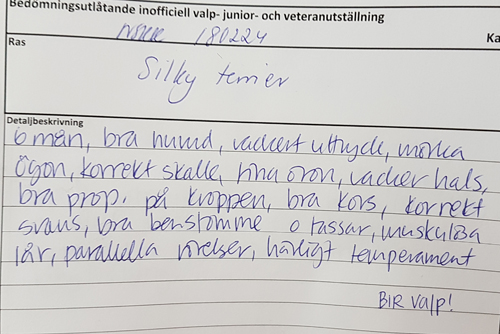 Bedömningsutlåtande inofficiell valp- junior- och veteranutställning
180224
Ras
Ka
Silky terrier
Detaljbeskrivning
6 mån, bra huvud, vackert uttryck, mörka
ögon, korrekt skalle, fina öron, vacker hals,
bra prop. på kroppen, bra kors, korrekt
svans, bra benstomme o tassar, muskulösa
lår, parallella rörelser, härligt temperament
BIR valp!